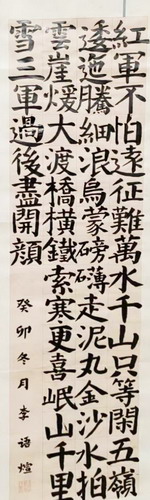 紅軍不怕遠征難萬水千山只等閑五嶺
逶迤騰細浪烏蒙磅礴走泥丸金沙水拍
雲崖煖大渡橋橫鐵索寒更喜岷山千里
雪三軍過後盡開顏
癸卯冬月李語煊